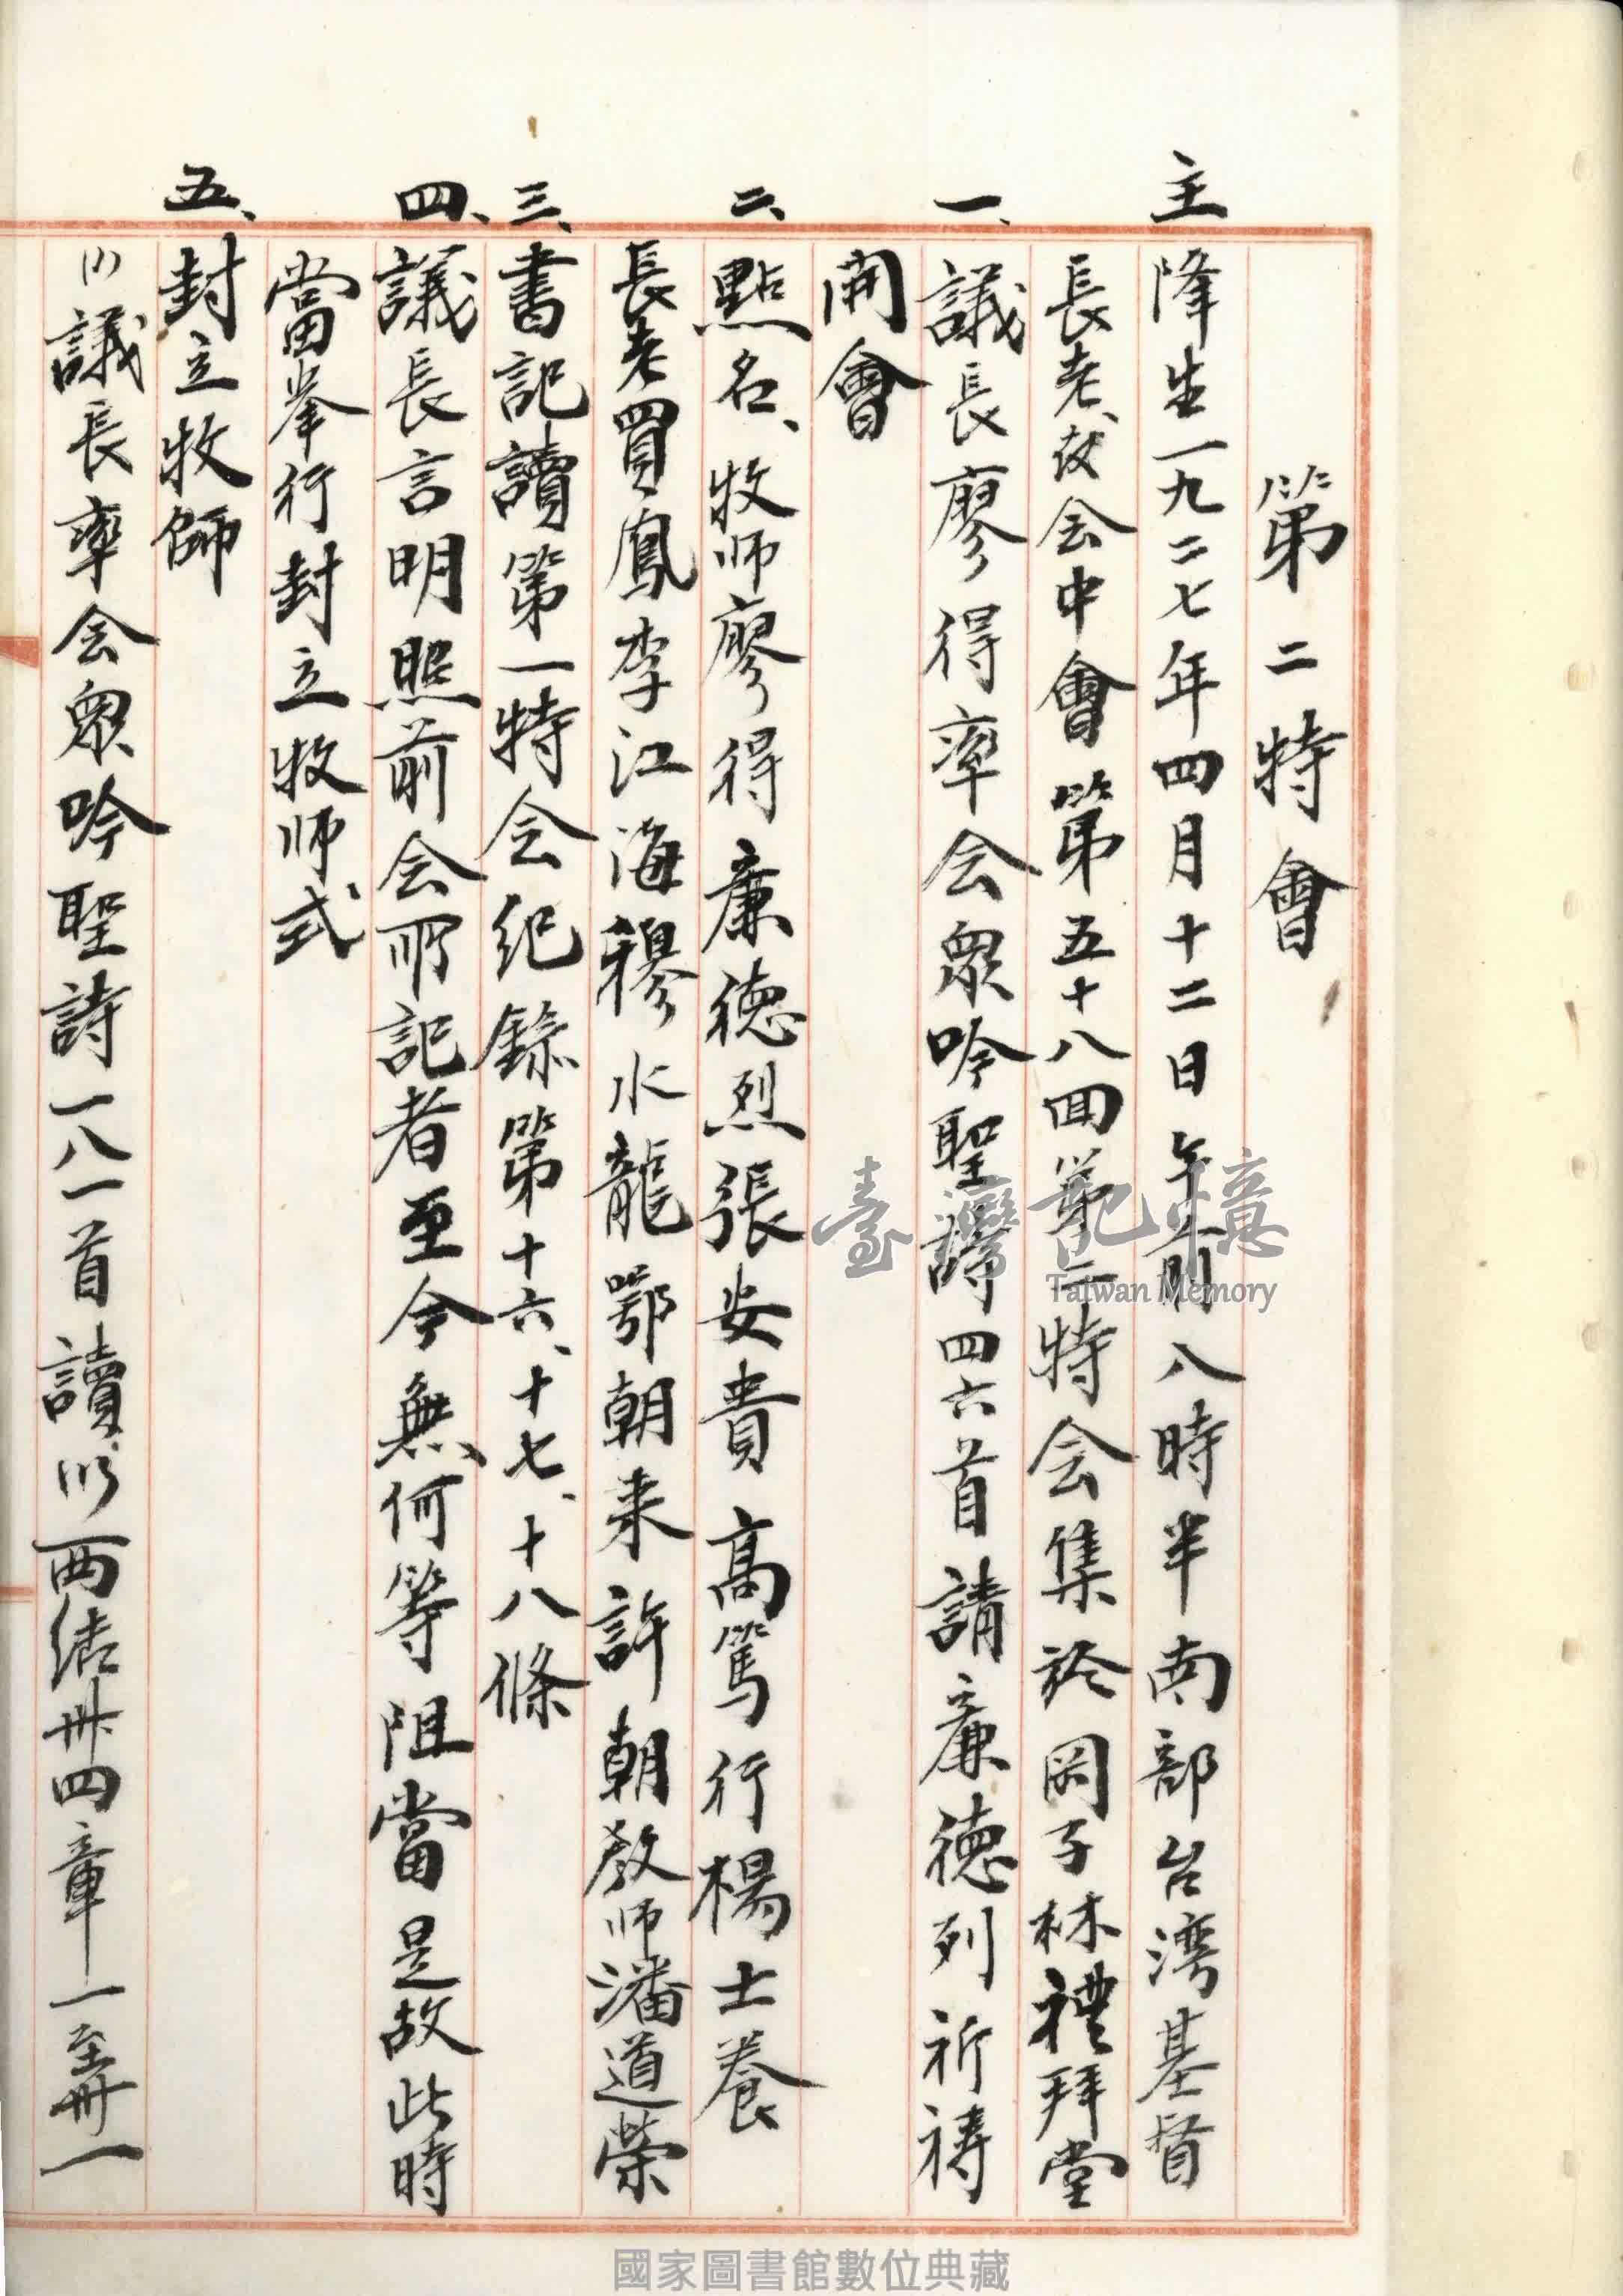 第二特會
主降生一九二七年四月十二日午前八時半南部台湾基督
長老教会中會第五十八回第二特会集於岡子林禮拜堂
一、議長廖得率会眾吟聖詩四六首請廉德列祈禱
開會
二、點名、牧师廖得廉德烈張安貴高篤行楊士養
長老買鳳李江海穆水龍鄂朝来許朝教师潘道榮
三、書記讀第一特会紀錄第十六、十七、十八條
四、議長言明照前会所記者至今無何等阻當是故此時
當举行封立牧师式
五、封立牧師
(1)議長率会眾吟聖詩一八一首讀以西結卅四章一至卅一
臺灣記憶
Taiwan Memory
國家圖書館數位典藏